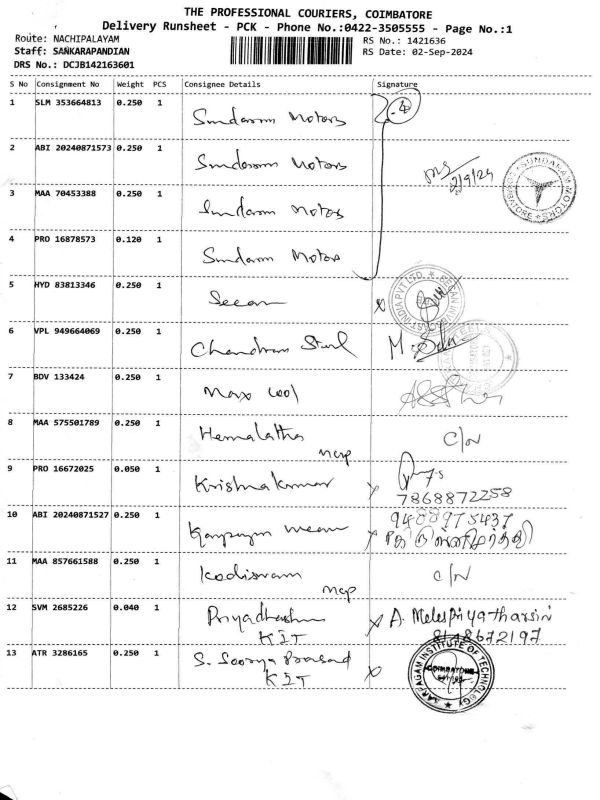 THE PROFESSIONAL COURIERS, COIMBATORE
Delivery Runsheet - PCK - Phone No.:0422-3505555 - Page No.:1
Route: NACHIPALAYAM RS No.: 1421636
Staff: SANKARAPANDIAN RS Date: 02-Sep-2024
DRS No.: DCJB142163601
S No Consignment No Weight PCS Consignee Details Signature
1 SLM 353664813 0.250 1 Sundaram Motors 4
2 ABI 20240871573 0.250 1 Sundaram Motors
2/9/24
SUNDARAM MOTORS COIMBATORE
3 MAA 70453388 0.250 1 Sundaram Motors
4 PRO 16878573 0.120 1 Sundaram Motors
5 HYD 83813346 0.250 1 Seean x
6 VPL 949664069 0.250 1 Chandram Steel
7 BDV 133424 0.250 1 Max Cool
8 MAA 575501789 0.250 1 Hemalatha C/N
ncp
9 PRO 16672025 0.050 1 Krishnakumar x
7868872258
10 ABI 20240871527 0.250 1 9488975437
x
11 MAA 857661588 0.250 1 Kodisvaram C/N
ncp
12 SVM 2685226 0.040 1 Priyadharshini x A. Melespriyatharsin
KIT 8148672197
13 ATR 3286165 0.250 1 S. Soorya Prasad x
KIT
KARPAGAM INSTITUTE OF TECHNOLOGY
COIMBATORE